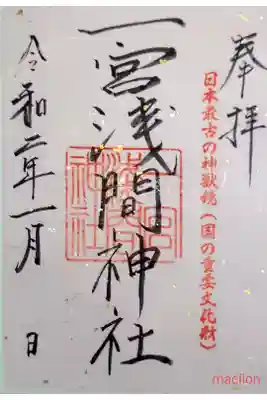 奉拝
日本最古の神獣鏡(国の重要文化財)
一宮浅間神社
令和二年一月 日
maclion